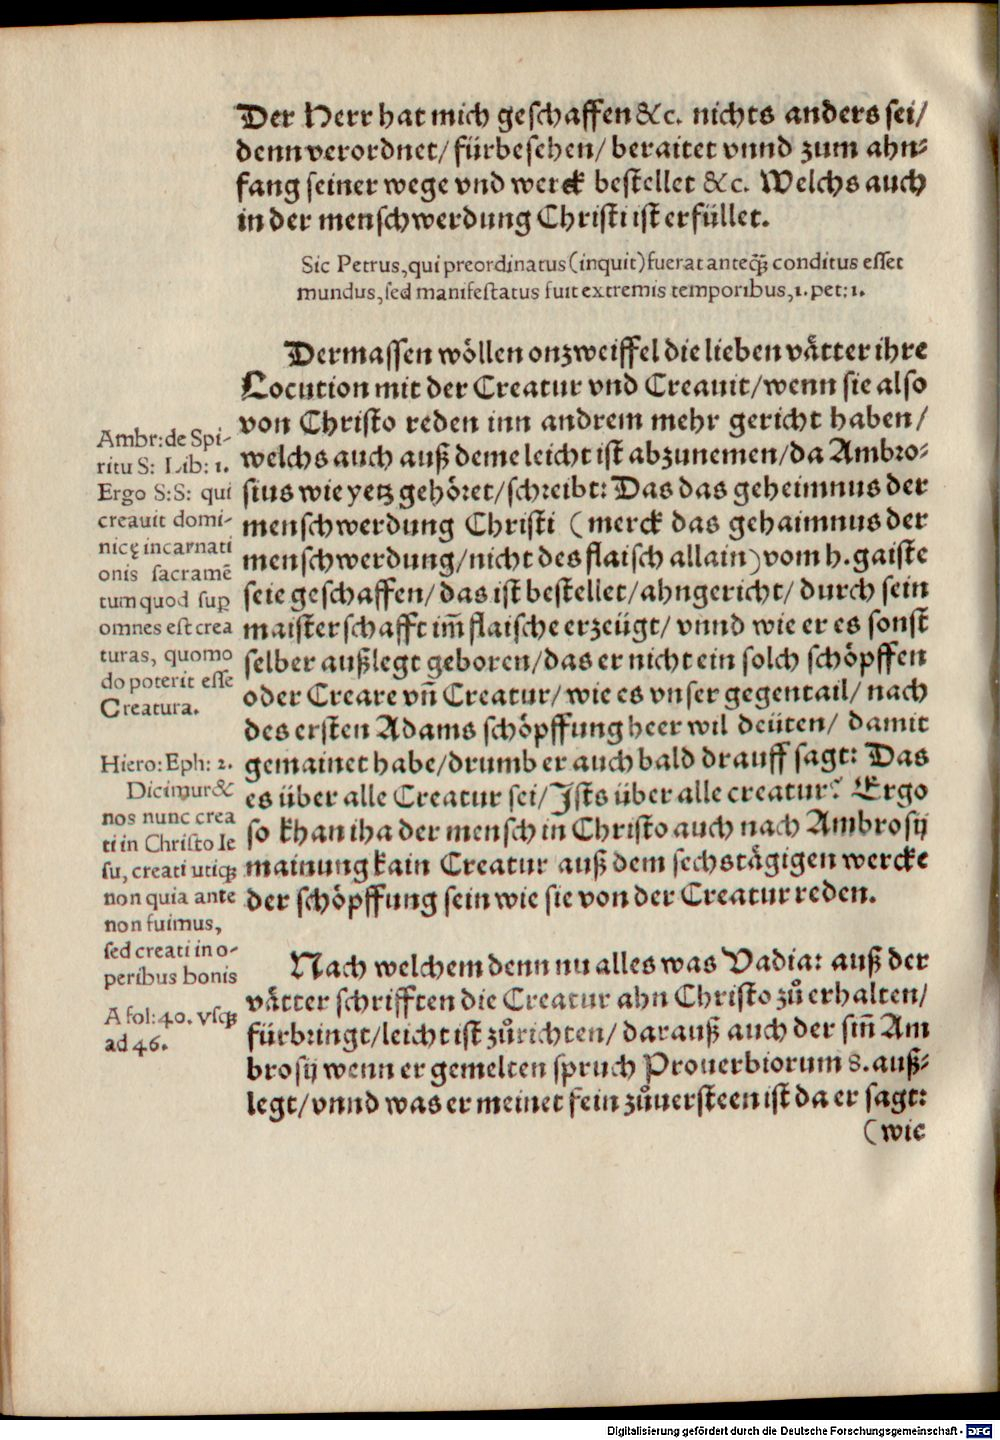 Der Herr hat mich geschaffen &c. nichts anders sei/
denn verordnet/ fürbesehen/ beraitet vnnd zum ahn⸗
fang seiner wege vnd werck bestellet &c. Welchs auch
in der menschwerdung Christi ist erfüllet.
Sic Petrus, qui preordinatus (inquit) fuerat anteq̃ȝ conditus esset
mundus, sed manifestatus fuit extremis temporibus, 1. pet: 1.
Dermassen wöllen onzweiffel die lieben vätter ihre
Locution mit der Creatur vnd Creauit/ wenn sie also
von Christo reden inn andrem mehr gericht haben/
welchs auch auß deme leicht ist abzunemen/ da Ambro⸗
sius wie yetz gehöret/ schreibt: Das das geheimnus der
menschwerdung Christi (merck das gehaimnus der
menschwerdung/ nicht des flaisch allain) vom h. gaiste
seie geschaffen/ das ist bestellet/ ahngericht/ durch sein
maisterschafft im̃ flaische erzeügt/ vnnd wie er es sonst
selber außlegt geboren/ das er nicht ein solch schöpffen
oder Creare vñ Creatur/ wie es vnser gegentail/ nach
des ersten Adams schöpffung heer wil deüten/ damit
gemainet habe/ drumb er auch bald drauff sagt: Das
es über alle Creatur sei/ Ists über alle creatur? Ergo
so khan iha der mensch in Christo auch nach Ambrosij
mainung kain Creatur auß dem sechstägigen wercke
der schöpffung sein wie sie von der Creatur reden.
Nach welchem denn nu alles was Vadia: auß der
vätter schrifften die Creatur ahn Christo zů erhalten/
fürbringt/ leicht ist zůrichten/ darauß auch der sin̄ Am
brosij wenn er gemelten spruch Prouerbiorum 8. auß⸗
legt/ vnnd was er meinet fein zůuersteen ist da er sagt:
(wie
Ambr: de Spi-
ritu S: Lib: 1.
Ergo S:S: qui
creauit domi-
nicę incarnati
onis sacramē
tum quod suꝑ
omnes est crea
turas, quomo
do poterit esse
Creatura.
Hiero: Eph: 2.
Dicimur &
nos nunc crea
ti in Christo Ie
su, creati utiqȝ
non quia ante
non fuimus,
sed creati in o-
peribus bonis
A fol: 40. vsqȝ
ad 46.
Digitalisierung gefördert durch die Deutsche Forschungsgemeinschaft - DFG